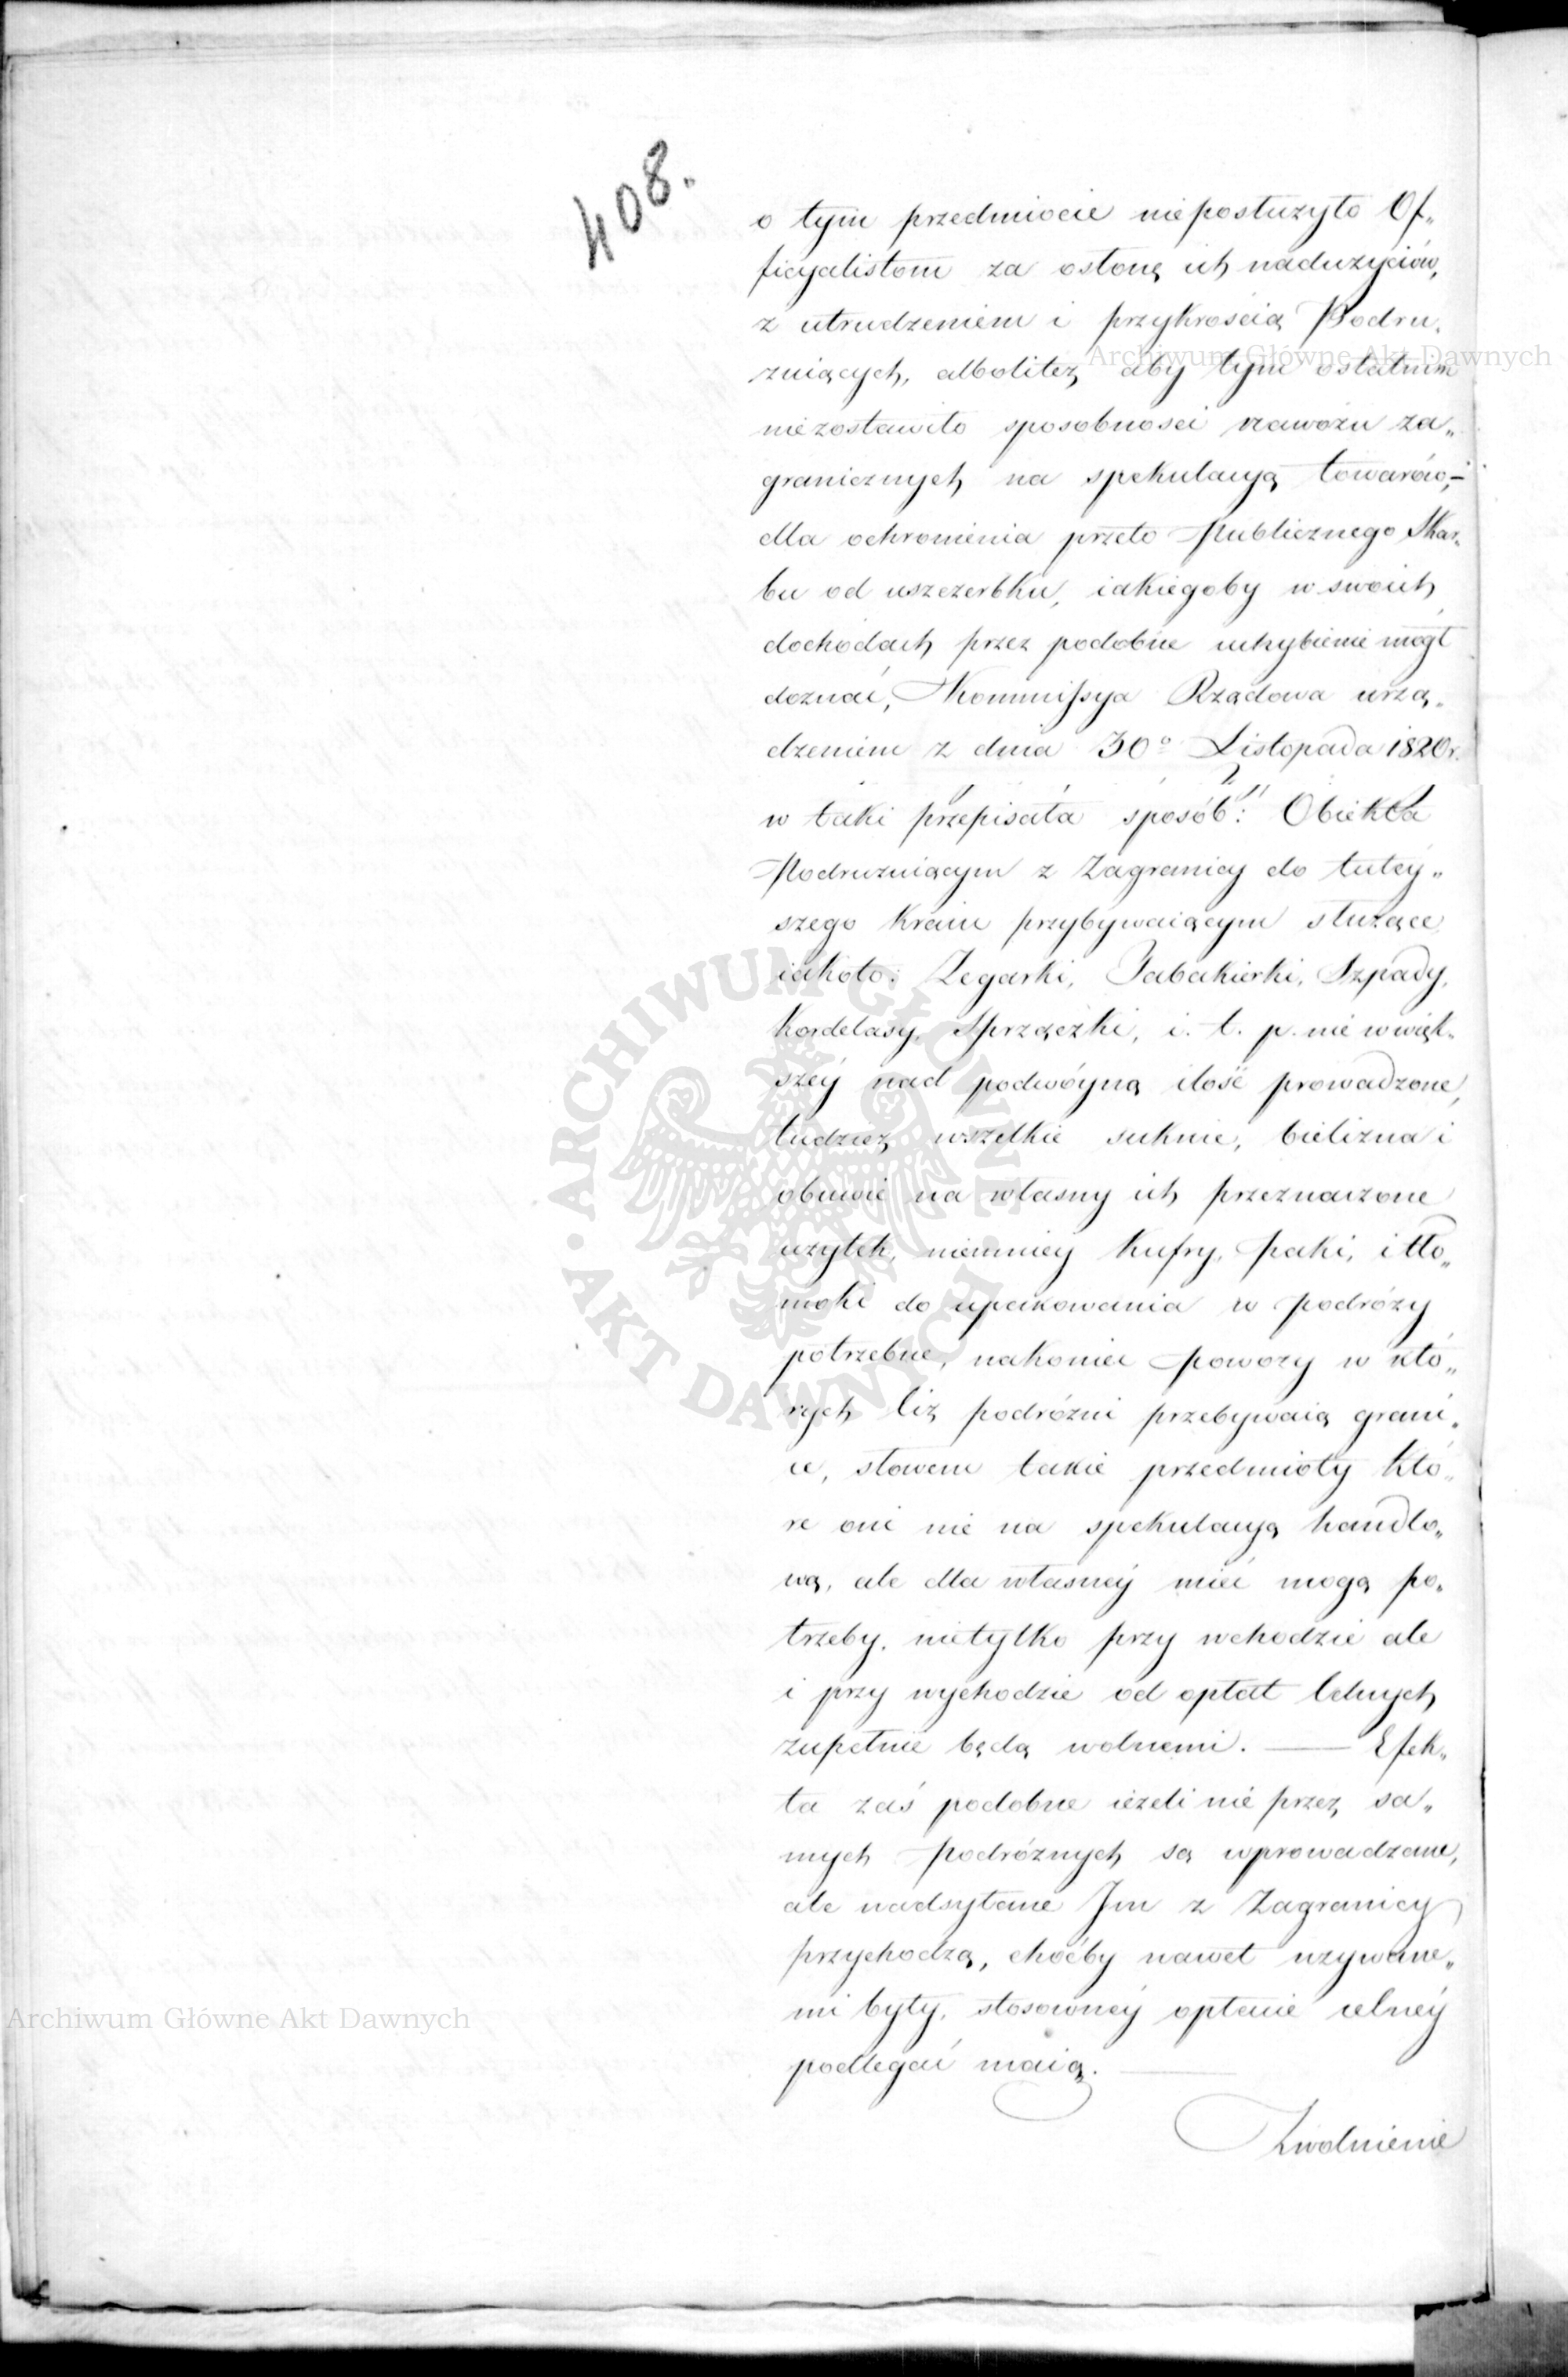 408.
o tym przedmiocie nieposłużyło Of„
ficyalistom za osłonę ich nadużyciów,
z utrudzeniem i przykrością Podru„
żuiących, albolitez aby tym ostatnim
niezostawiło sposobności nawozu za„
granicznych na spekulacyą towarów,–
dla ochronienia przeto Publicznego Skar„
bu od uszczerbku, iakiegoby w swoich
dochodach przez podobne uchybienie mógł
doznać, Kommissya Rządowa urzą„
dzeniem z dnia 30º Listopada 1820 r.
w taki przepisała sposób: "Obiekta
Podruzuiącym z Zagranicy do tutey„
szego Kraiu przybywaiącym służące
iakoto: Zegarki, Tabakierki, Szpady,
kordelasy, Sprzączki, i. t. p. nie w więk„
széy nad podwóyną ilość prowadzone,
tudzież wszelkie suknie, bielizna i
obuwie na własny ich przeznaczone
użytek, niemniey Kufry, paki, i tło„
moki do upakowania w podróży
potrzebne, nakoniec powozy w któ„
rych ciż podróżni przebywaią grani„
ce, słowem takie przedmioty któ„
re oni nie na spekulacyą handlo„
wą, ale dla własnéy mieć mogą po„
trzeby, nietylko przy wchodzie ale
i przy wychodzie od opłat Celnych
zupełnie będą wolnemi. — Efek„
ta zaś podobne ieżeli nie przez sa„
mych podróżnych są wprowadzane,
ale nadsyłane Im z Zagranicy
przychodzą, choćby nawet używane„
mi były, stosownéy opłacie celnéy
podlegać maią. —
Zwolnienie
Archiwum Główne Akt Dawnych
ARCHIWUM GŁÓWNE • AKT DAWNYCH •
Archiwum Główne Akt Dawnych